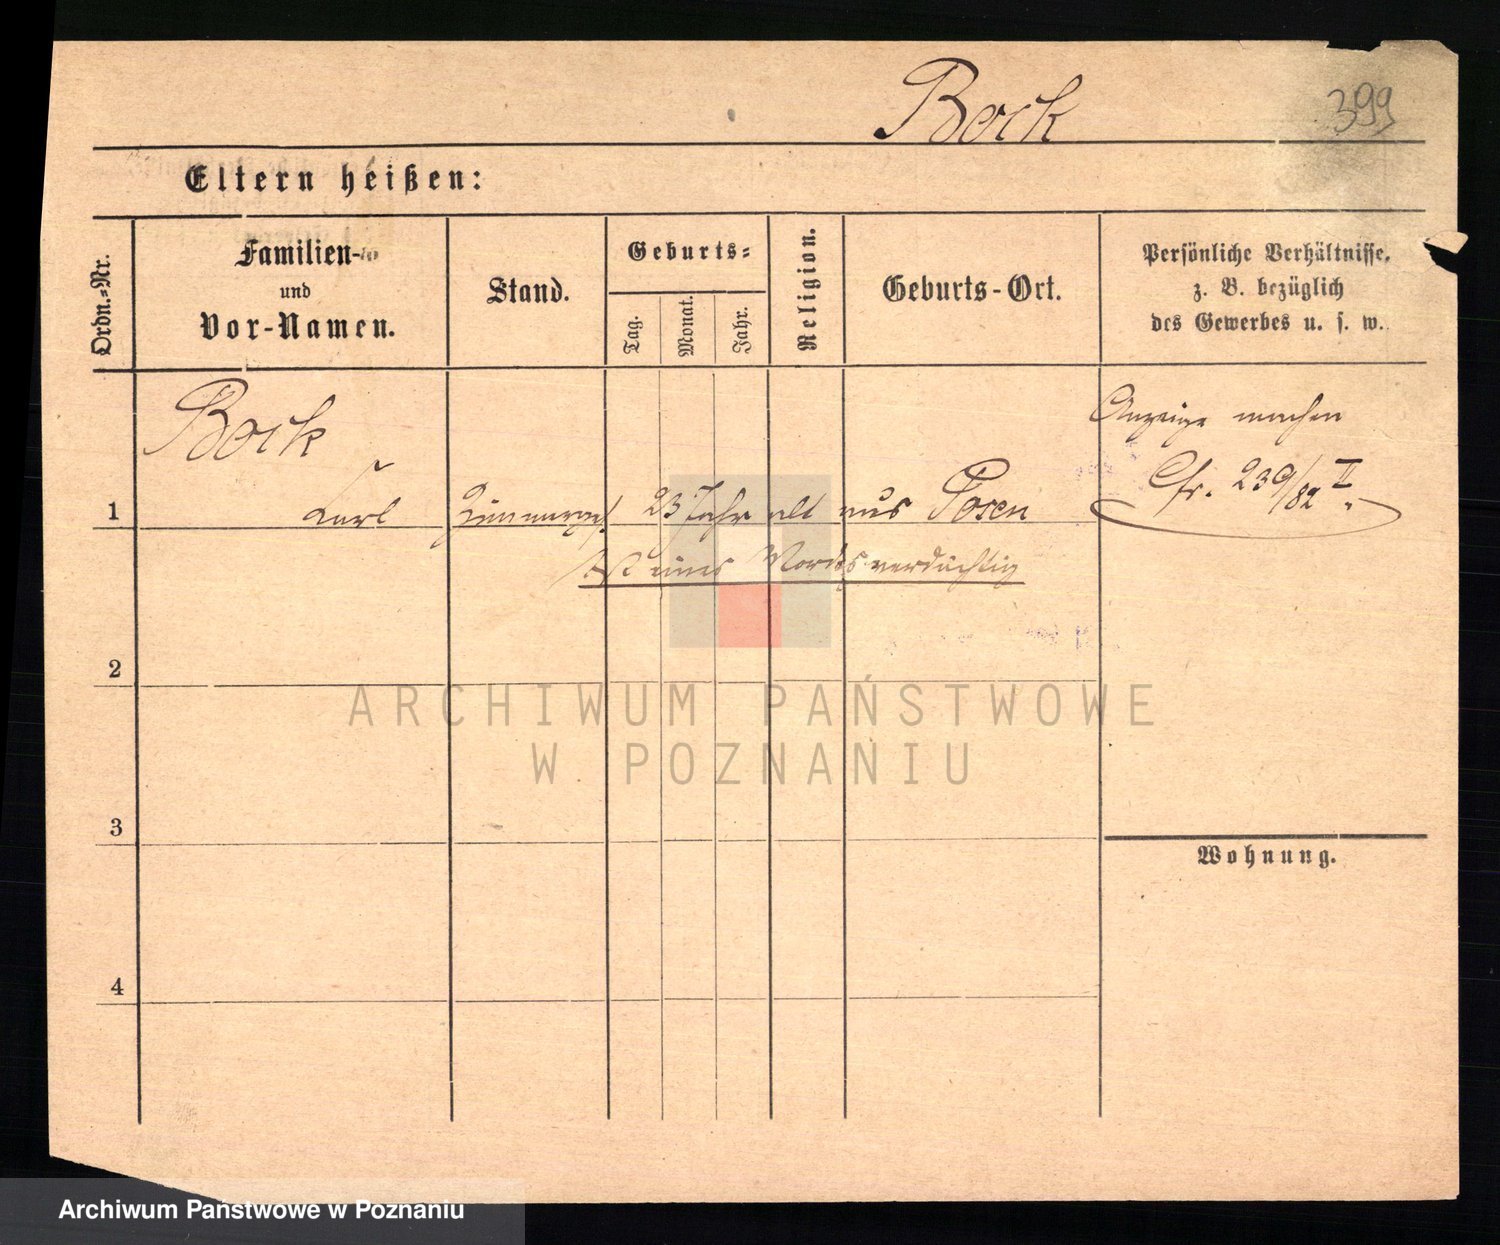 Bock
399
Eltern heißen:
Ordn.-Nr.
Familien-
und
Vor-Namen.
Stand.
Geburts-
Tag.
Monat.
Jahr.
Religion.
Geburts-Ort.
Persönliche Verhältnisse,
z. B. bezüglich
des Gewerbes u. s. w.
Bock
Anzeige machen
Cfr. 239/82 II.
1 Karl Zimmerges. 23 Jahr alt aus Posen
Ist eines Mordes verdächtig
2
3
Wohnung.
4
ARCHIWUM PAŃSTWOWE
W POZNANIU
Archiwum Państwowe w Poznaniu